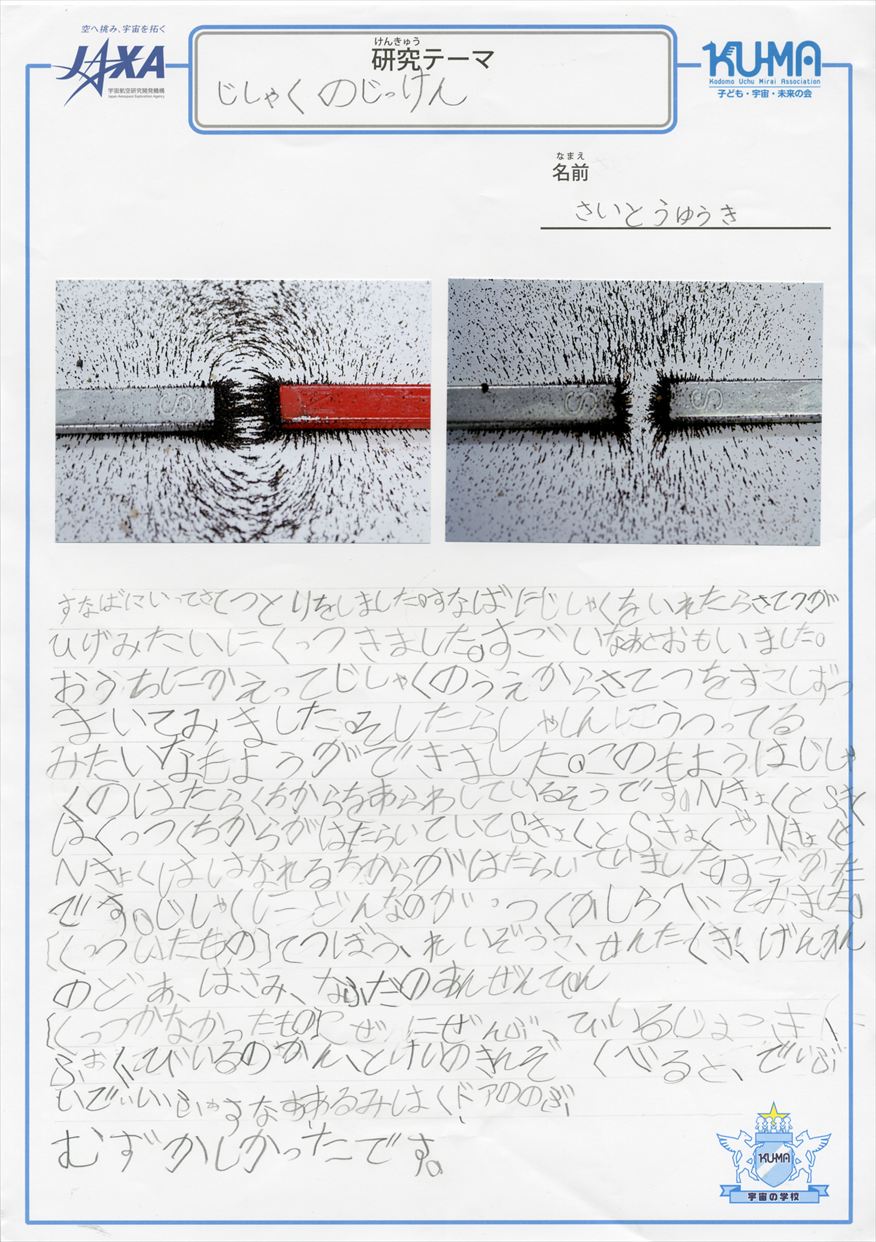 空へ挑み、宇宙を拓く
JAXA
宇宙航空研究開発機構
Japan Aerospace Exploration Agency
けんきゅう
研究テーマ
じしゃくのじっけん
KU-MA
Kodomo Uchu Mirai Association
子ども・宇宙・未来の会
なまえ
名前
さいとうゆうき
S
S
S
すなばにいってさてつとりをしました。すなばにじしゃくをいれたらさてつが
ひげみたいにくっつきました。すごいなぁとおもいました。
おうちにかえってじしゃくのうえからさてつをすこしずつ
まいてみました。そしたらしゃしんにうつってる
みたいなもようができました。このもようはじしゃ
くのはたらくちからをあらわしているそうです。NきょくとSきょく
はくっつくちからがはたらいていてSきょくとSきょくやNきょくと
Nきょくははなれるちからがはたらいていました。すごかった
です。じしゃくにどんなのがつくかしらべてみました。
[くっついたもの]てつぼう、れいぞうこ、せんたくき、げんかん
のどあ、はさみ、なふだのあんぜんぴん
[くっつかなかったもの]ぜにぜんぶ、
びいるのかん、とけいの べると、
すな あるみはく、ドアののぶ
むずかしかったです。
KU-MA
宇宙の学校